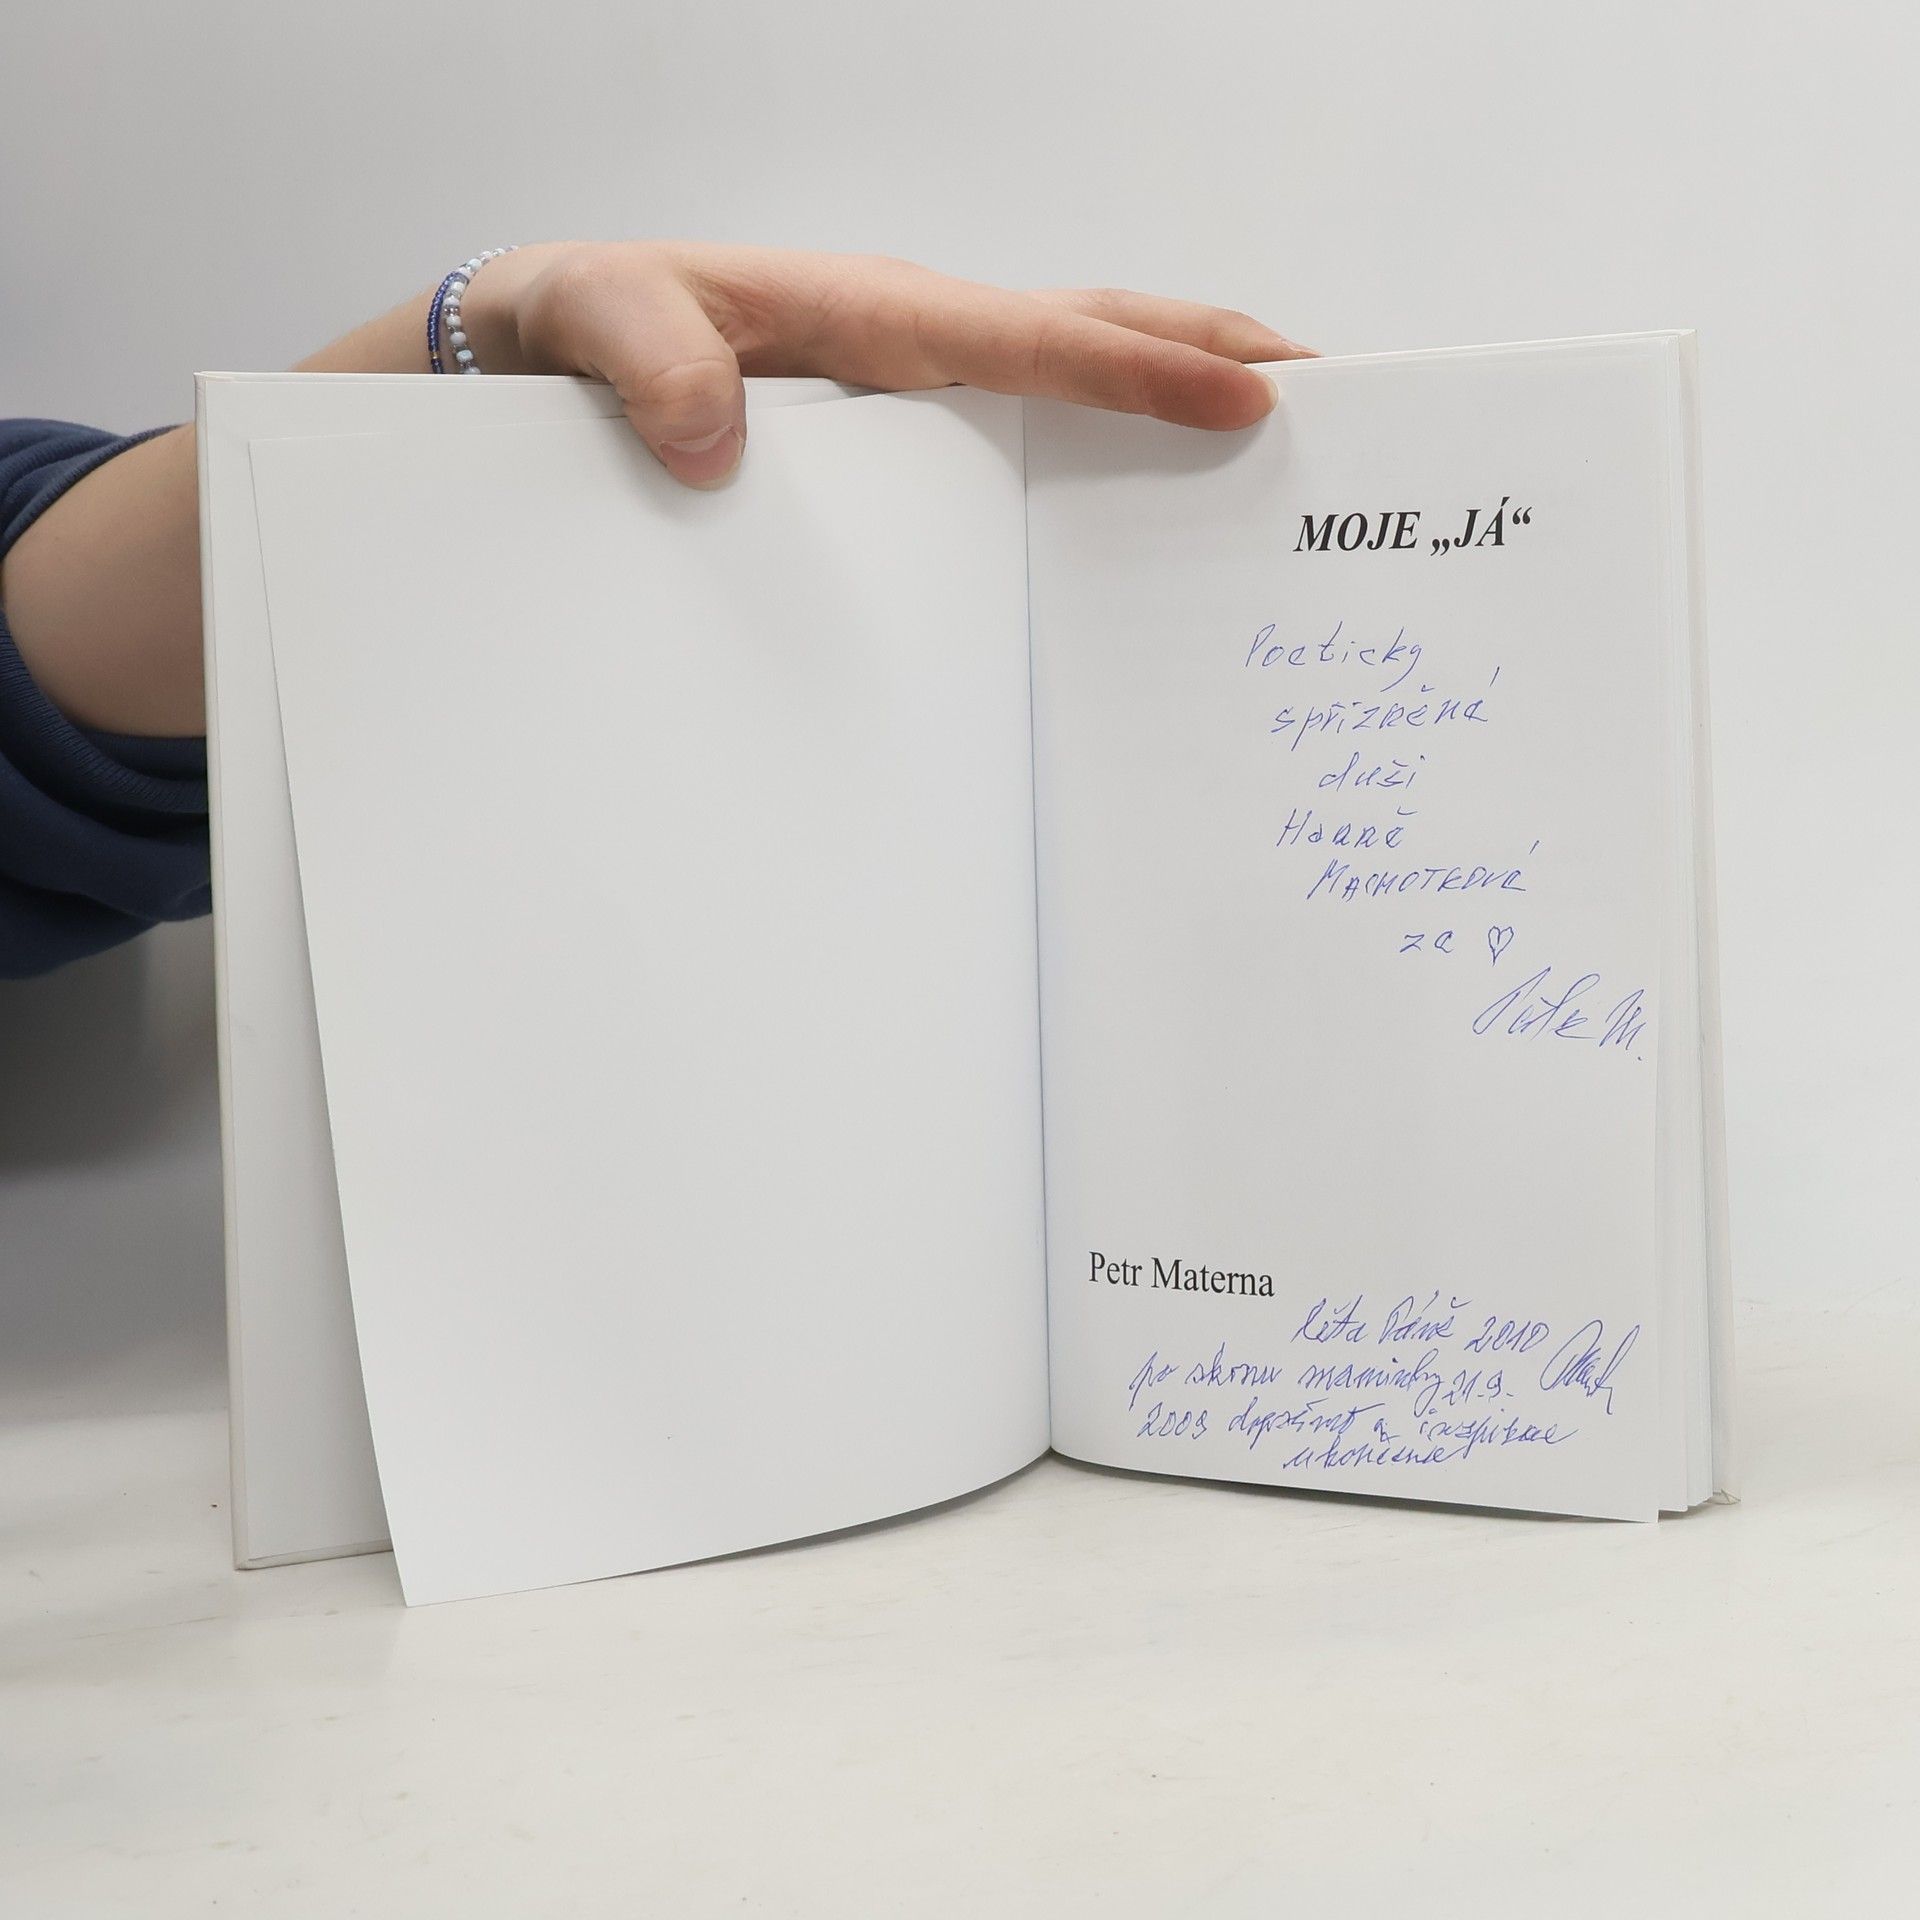 MOJE „JÁ“
Poeticky
spřízněné
duši
Hanně
MACHOTKOVÉ
za ♡
Petr M.
Petr Materna
léta Páně 2010
po skonu maminky 21.9.
2009 a inspirace
ukončena